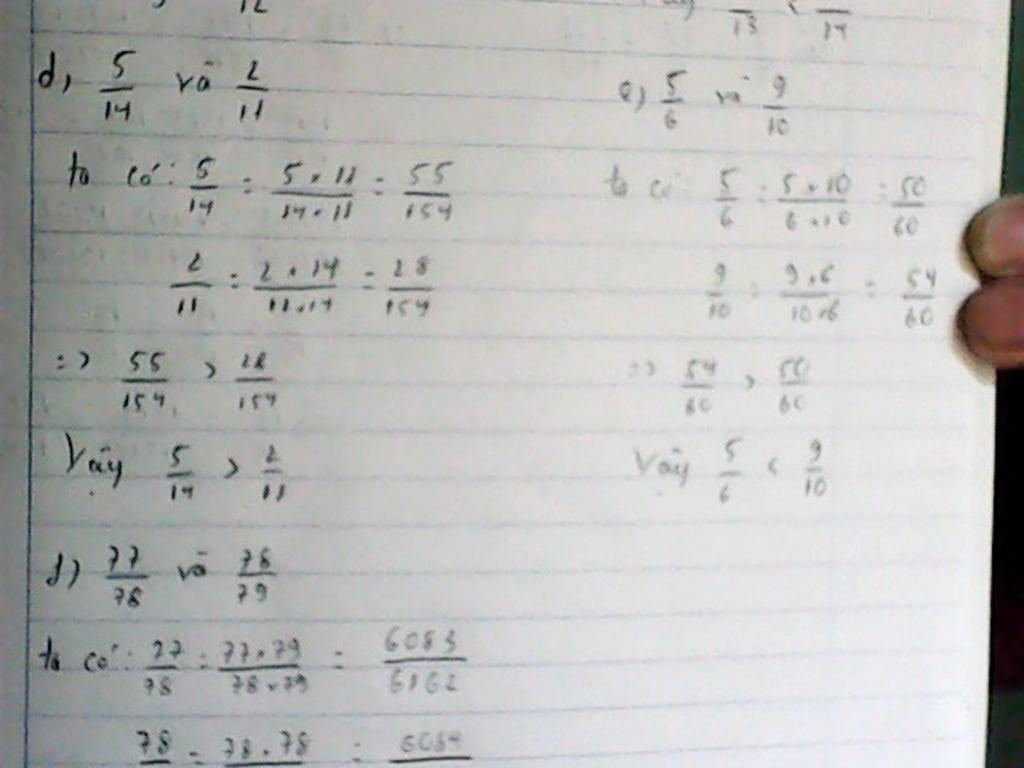 12
13 < 14
d) 5/14 và 2/11
ta có: 5/14 = 5 × 11/14 × 11 = 55/154
2/11 = 2 × 14/11 × 14 = 28/154
=> 55/154 > 28/154
Vậy 5/14 > 2/11
e) 5/6 và 9/10
ta có: 5/6 = 5 × 10/6 × 10 = 50/60
9/10 = 9 × 6/10 × 6 = 54/60
=> 54/60 > 50/60
Vậy 5/6 < 9/10
f) 77/78 và 78/79
ta có: 77/78 = 77 × 79/78 × 79 = 6083/6162
78 = 78 × 78 = 6084